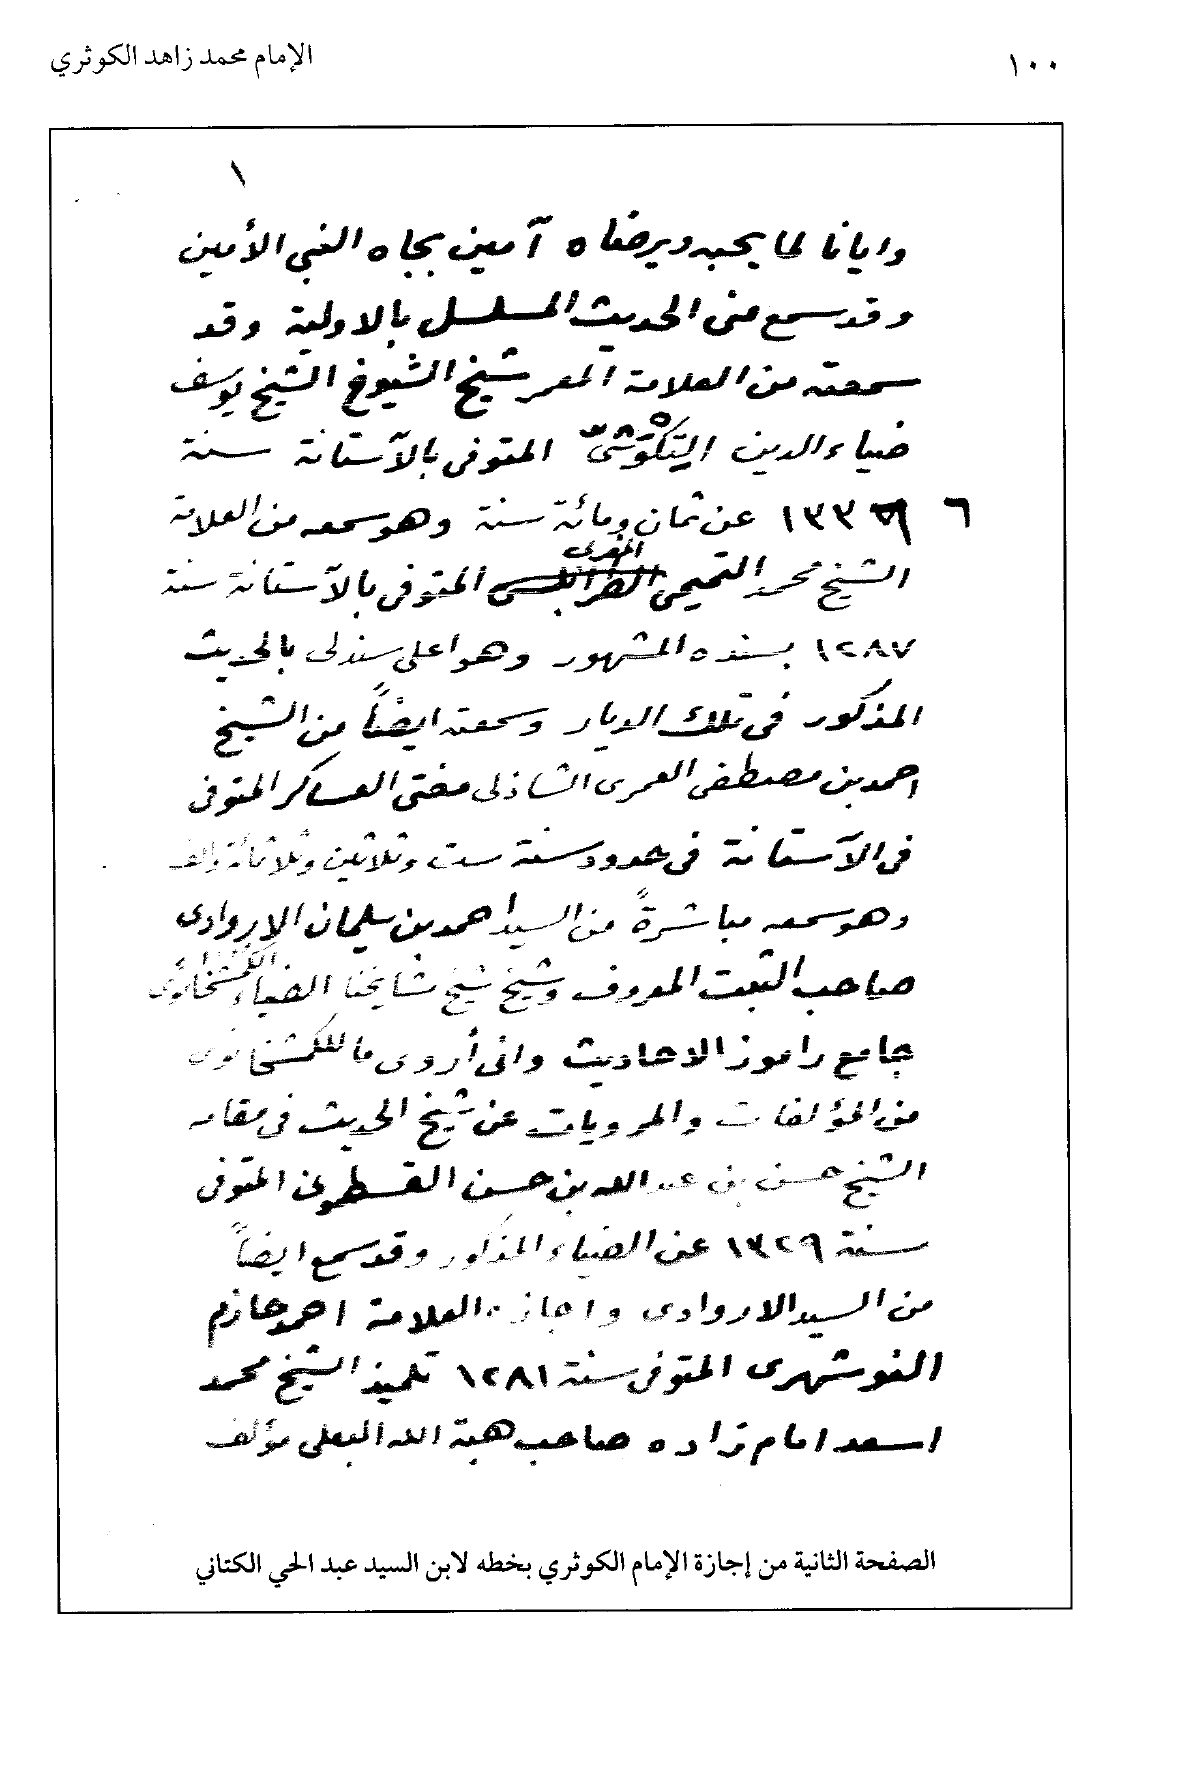 ١٠٠
الإمام محمد زاهد الكوثري
١
وايانا لما يحبه ويرضاه آمين بجاه النبي الأمين
وقد سمع منى الحديث المسلسل بالاولية وقد
سمعته من العلامة المعمر شيخ الشيوخ الشيخ يوسف
ضياء الدين التِكْوَشىّ المتوفى بالآستانة سنة
٦ ١٣٣٩ عن ثمان ومائة سنة وهو سمعه من العلامة
المغربى
الشيخ محمد التميمى الطرابلسى المتوفى بالآستانة سنة
١٢٨٧ بسنده المشهور وهو اعلى سند لى بالحديث
المذكور فى تلك الديار وسمعته ايضاً من الشيخ
احمد بن مصطفى العمرى الشاذلى مفتى العساكر المتوفى
فى الآستانة فى حدود سنة ست وثلاثين وثلاثمائة والف
وهو سمعه مباشرةً من السيد احمد بن سليمان الاروادى
صاحب الثبت المعروف وشيخ شيخ مشايخنا الضياء الكمشخانوى
جامع راموز الاحاديث وانى أروى ما للكمشخانوى
من المؤلفات والمرويات عن شيخ الحديث فى مقامه
الشيخ حسن بن عبد الله بن حسن القسطمونى المتوفى
سنة ١٣٢٩ عن الضياء المذكور وقد سمع ايضاً
من السيد الاروادى واجازه العلامة احمد حازم
النوشهرى المتوفى سنة ١٢٨١ تلميذ الشيخ محمد
اسعد امام زاده صاحب هبة الله البعلى مؤلف
الصفحة الثانية من إجازة الإمام الكوثري بخطه لابن السيد عبد الحي الكتاني